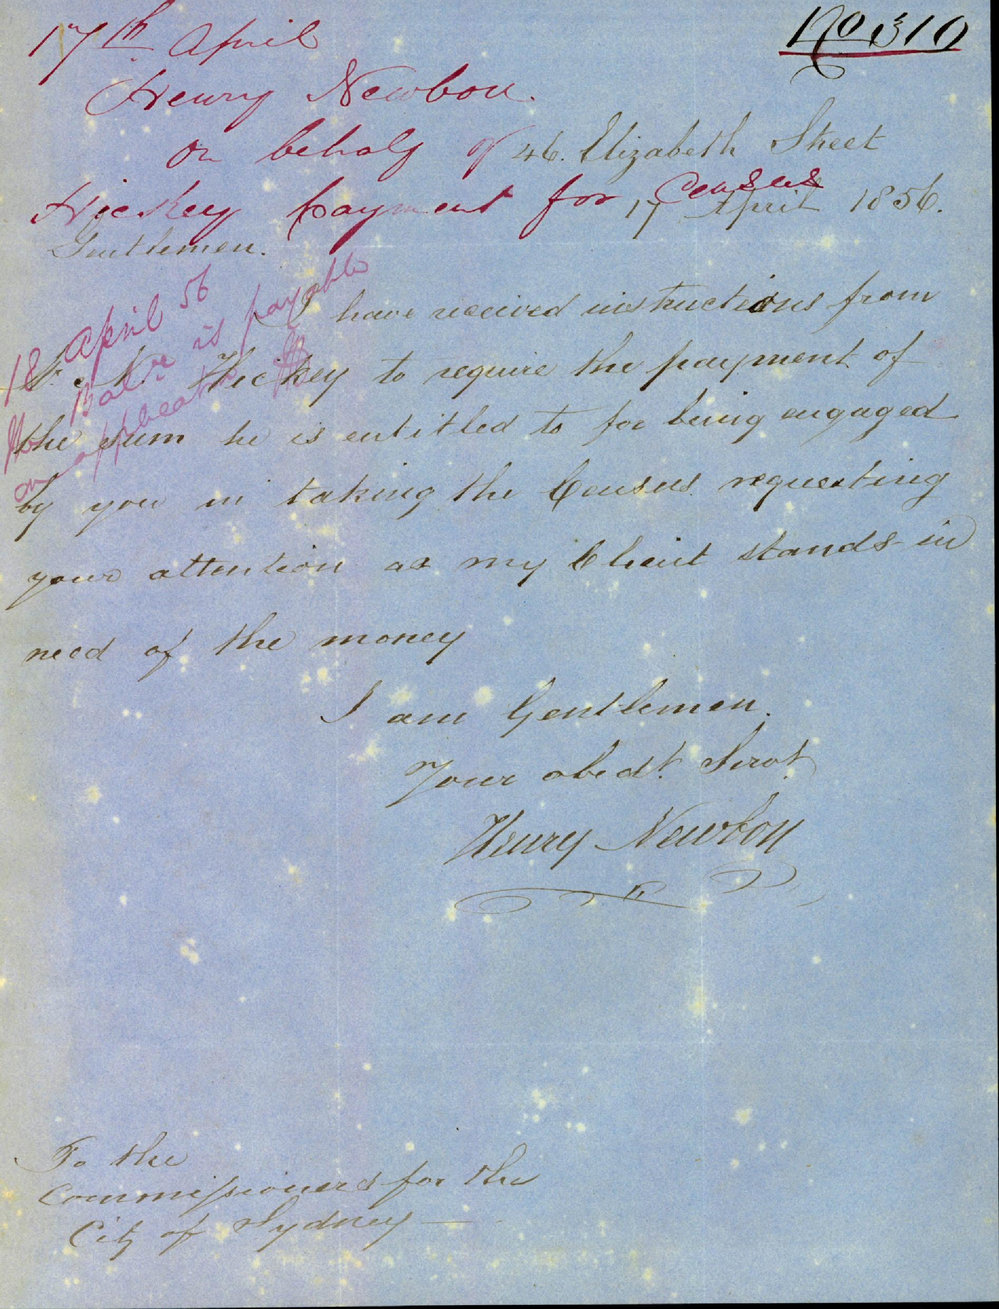 No 310
17th April
Henry Newbon.
on behalf of
Hickey payment for Census
46. Elizabeth Street
17 April 1856.
Gentlemen.
18 April 56
Bal is payable
on application
I have received instructions from
Hickey to require the payment of
the sum he is entitled to for being engaged
by you in taking the Census requesting
your attention as my Client stands in
need of the money
I am Gentlemen.
Your obedt. Servt
Henry Newbon
To the
Commissioners for the
City of Sydney